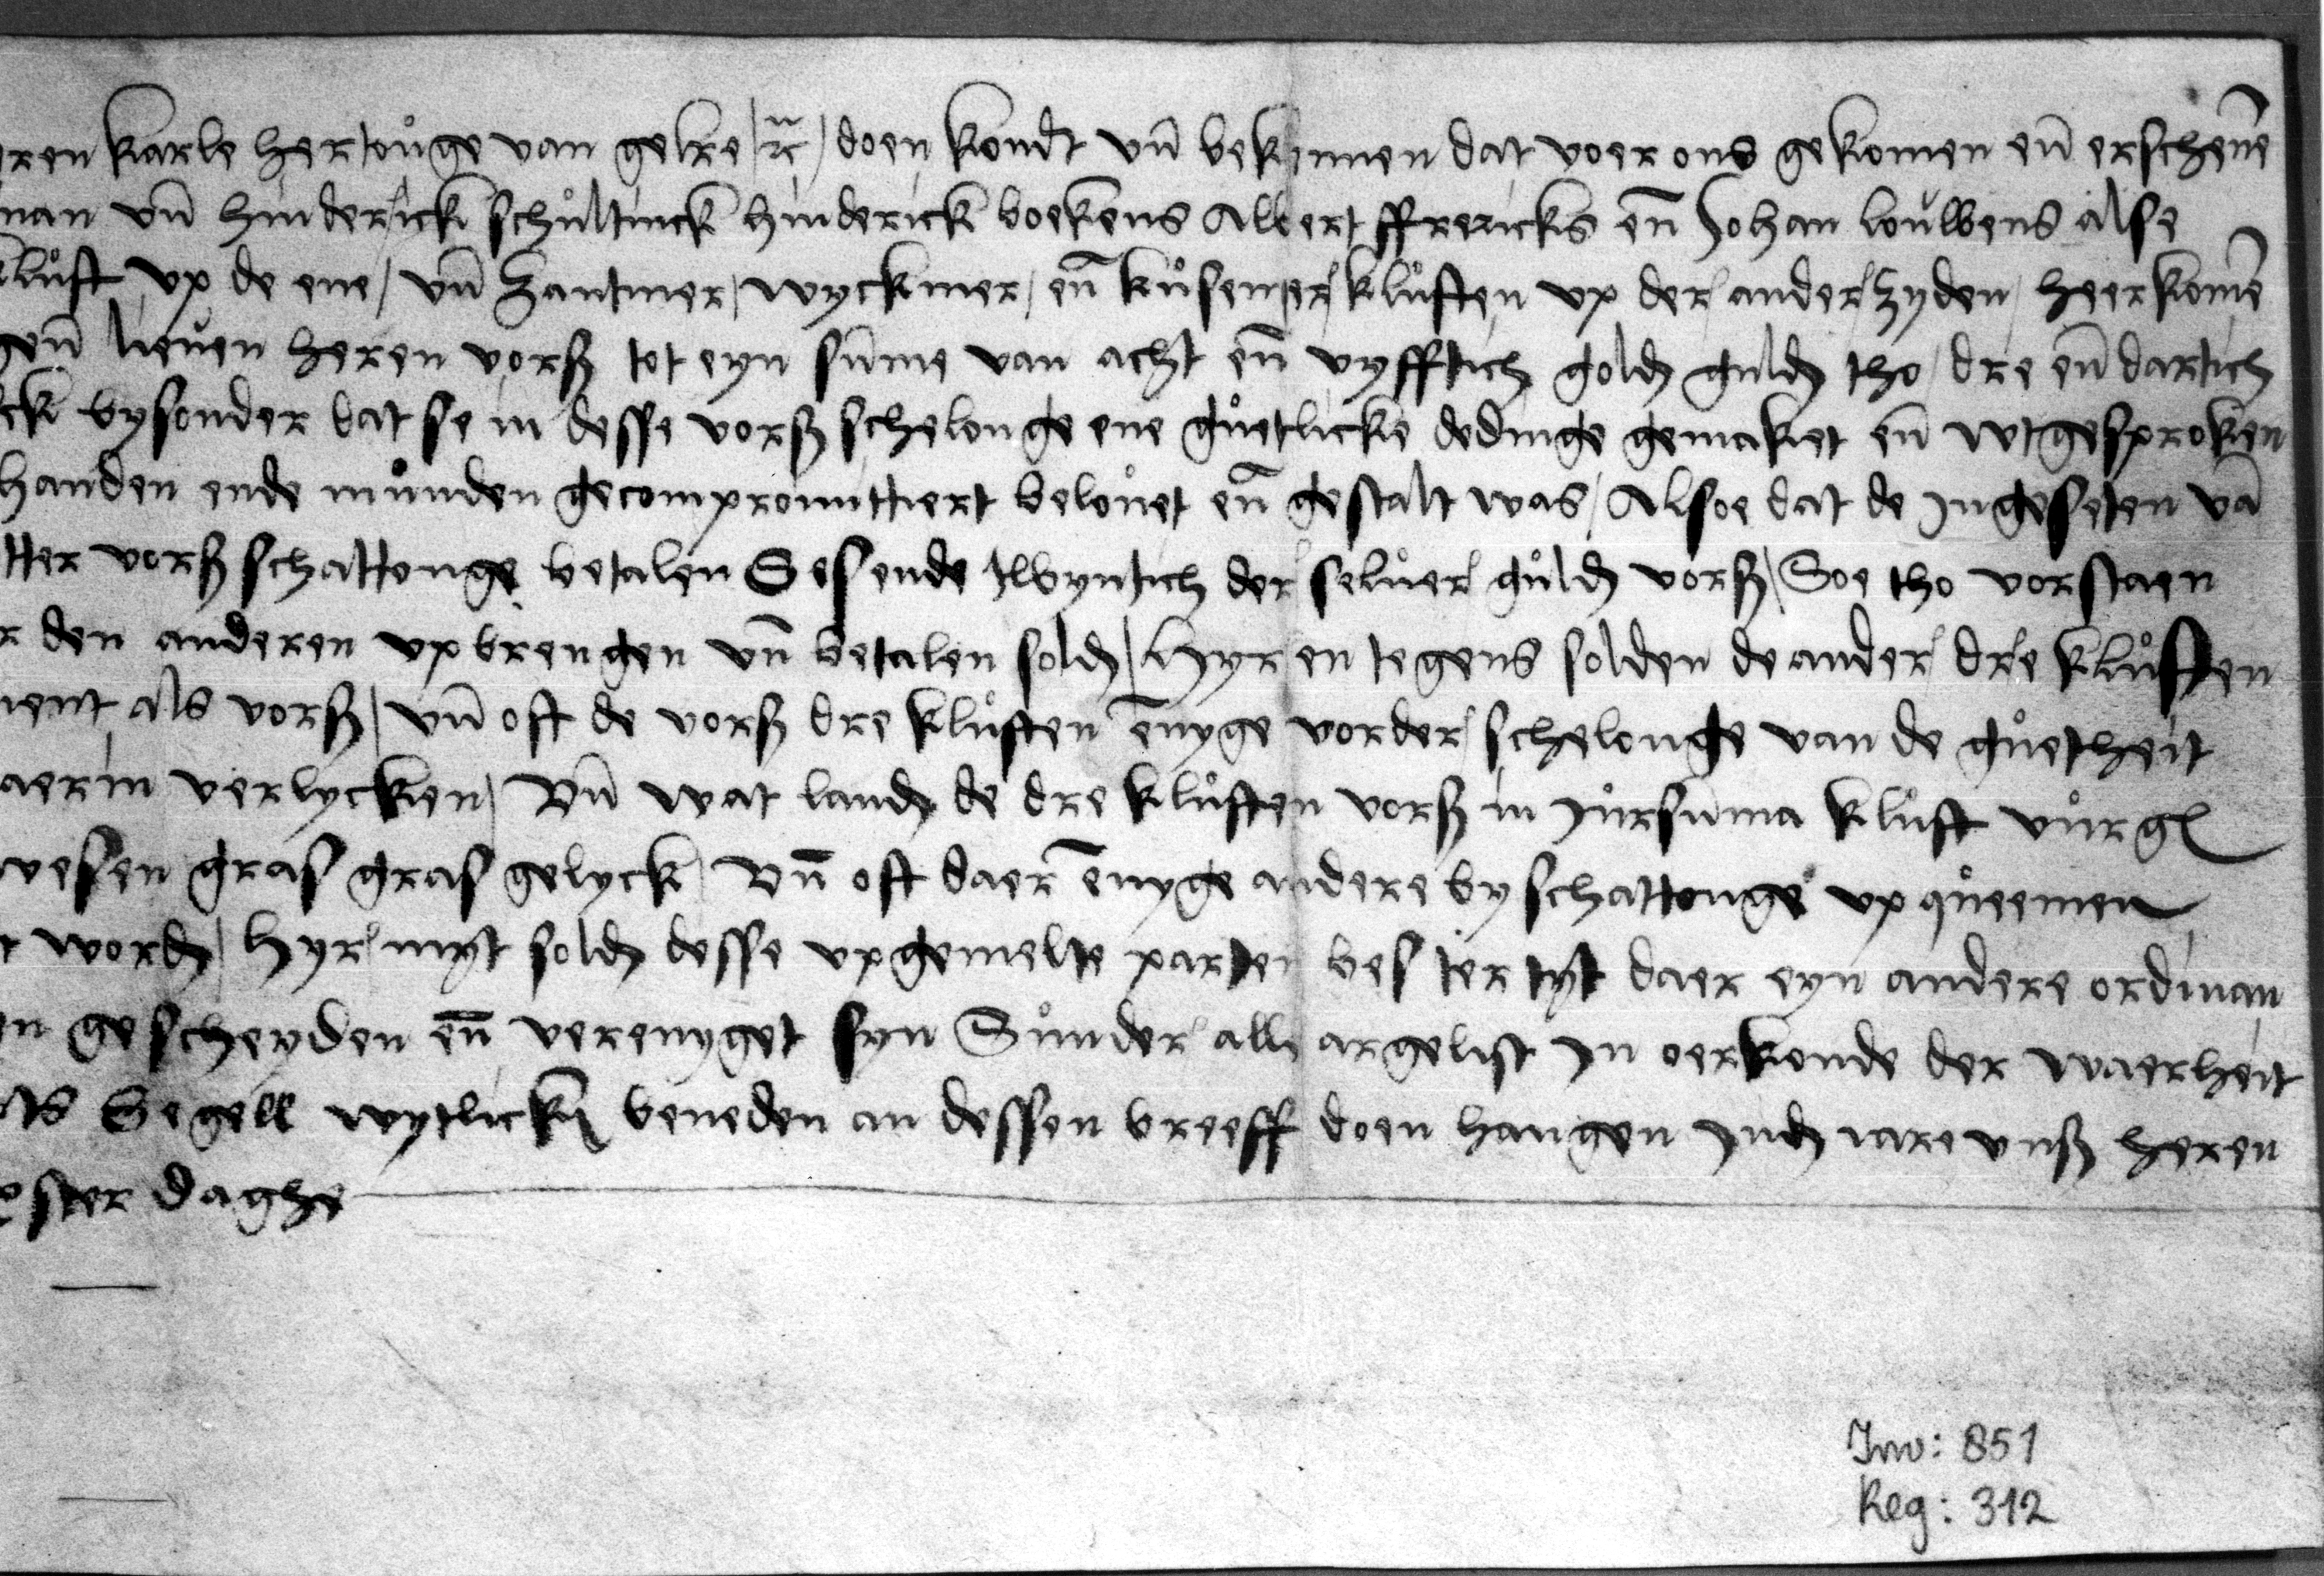 eren karle hertouge van gelre / rc / doen kondt vn̄ bekennen dat voer ons gekomen en̄ erschenē
man vn̄ hinderick schultinck hinderick boekens Albert ffrericks en̄ Johan louwens alse
kluft vp de ene / vn̄ Zantmer / wyckmer / en̄ kusemer kluften vp der ander zyden / heerkomē
gen̄ lieuen heren vorß tot eyn sum̄e van acht en̄ vyfftich gold guld tho / dre en̄ dartich
ck bysonder dat se in desse vorß schelonge ene guetlicke dedinge gemaket en̄ wtgesproken
handen ende munden gecompromittiert belouet en̄ gestalt was / Alsoe dat de Ingeseten vā
tter vorß schattonge betalen Sesende twyntich der seluer guld vorß / Soe tho vorstaen
r den anderen vpbrengen vn̄ betalen sold / Hyr en tegens solden de ander dre kluften
ment als vorß / vn̄ oft de vorß dre kluften enyge vorder schelonge van de guetheit
aerin verlycken / Vn̄ wat land de dre kluften vorß in Jursum̄a kluft vur gl
wesen gras gras gelyck / Vn̄ oft daer enyge andere byschattonge vp queemen
r word / Hyr myt sold desse vpgemelte parten bes ter tyt daer eyn andere ordinan
en gescheyden en̄ verenyget syn Sunder alle argelist In oerkonde der waerheit
Segell wytlicken beneden an dessen breeff doen hangen Ind iare vnß heren
ster daghe
Inv: 851
Reg: 312